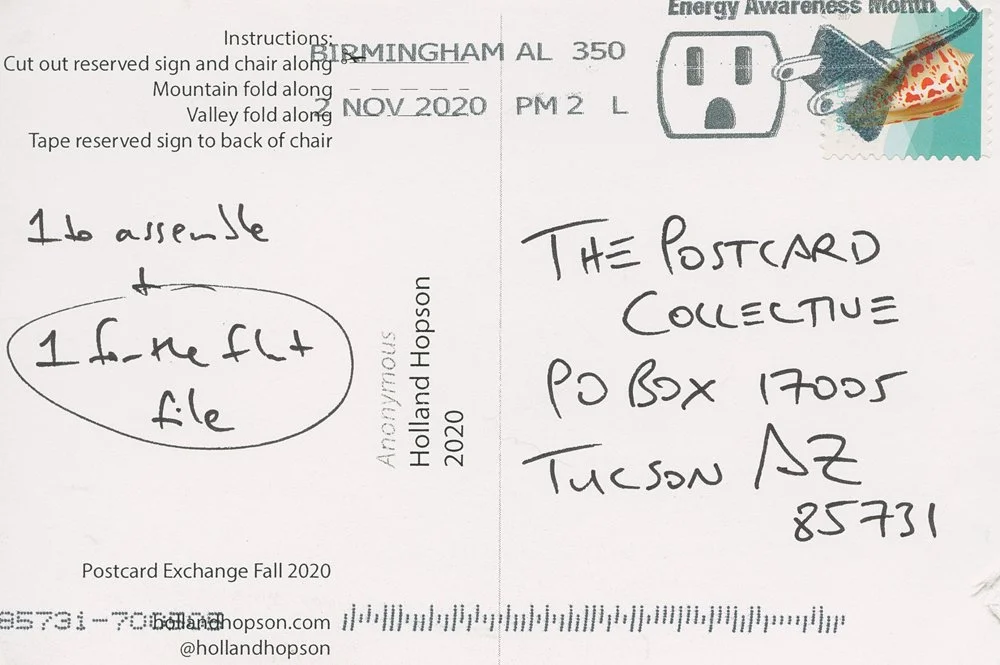 Energy Awareness Month
Instructions:
Cut out reserved sign and chair along
Mountain fold along
Valley fold along
Tape reserved sign to back of chair
BIRMINGHAM AL 350
2 NOV 2020 PM 2 L
1 to assemble
+
1 for the flat
file
Anonymous
Holland Hopson
2020
THE POSTCARD
COLLECTIVE
PO BOX 17005
TUCSON AZ
85731
Postcard Exchange Fall 2020
hollandhopson.com
@hollandhopson